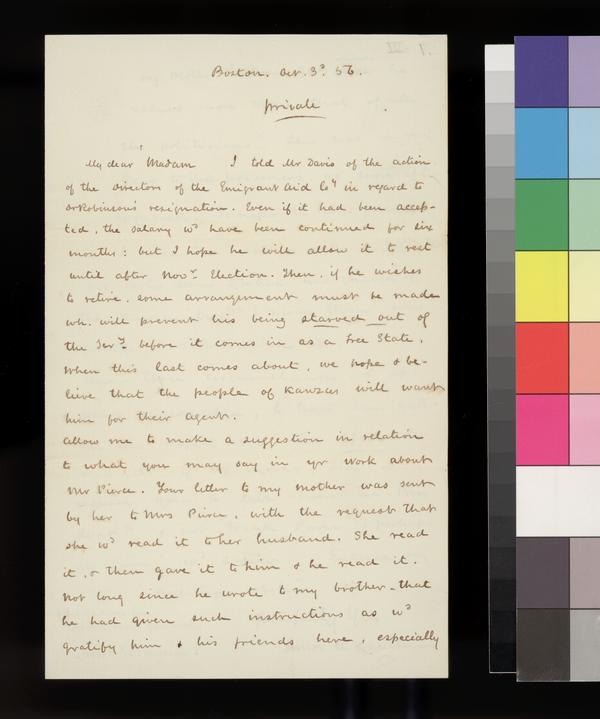 Boston. Oct. 3d. 56.
private
My dear Madam I told Mr Davis of the action
of the Directors of the Emigrant Aid Coy in regard to
Dr Robinson's resignation. Even if it had been accep-
ted, the salary wd have been continued for six
months: but I hope he will allow it to rest
until after Novr Election. Then, if he wishes
to retire, some arrangement must be made
wh. will prevent his being starved out of
the Tery before it comes in as a Free State.
When this last comes about, we hope & be-
lieve that the people of Kanzas will want
him for their agent.
Allow me to make a suggestion in relation
to what you may say in yr work about
Mr Pierce. Your letter to my mother was sent
by her to Mrs Pierce, with the request that
she wd read it to her husband. She read
it, & then gave it to him & he read it.
Not long since he wrote to my brother - that
he had given such instructions as wd
gratify him & his friends here, especially